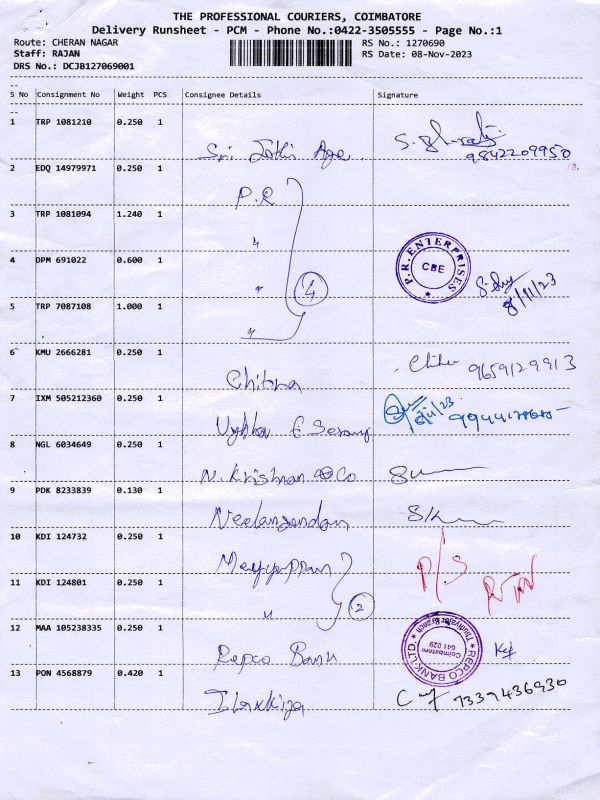 THE PROFESSIONAL COURIERS, COIMBATORE
Delivery Runsheet - PCM - Phone No.:0422-3505555 - Page No.:1
Route: CHERAN NAGAR RS No.: 1270690
Staff: RAJAN RS Date: 08-Nov-2023
DRS No.: DCJB127069001
S No Consignment No Weight PCS Consignee Details Signature
1 TRP 1081210 0.250 1
Sri Jothi Age 9842209950
2 EDQ 14979971 0.250 1
P.R
3 TRP 1081094 1.240 1
"
4 DPM 691022 0.600 1
" 4 P.R. ENTERPRISES CBE 8/11/23
5 TRP 7087108 1.000 1
"
6 KMU 2666281 0.250 1
Chitra 9659129913
7 IXM 505212360 0.250 1
8/11/23
8 NGL 6034649 0.250 1
N. Krishnan & Co
9 PDK 8233839 0.130 1
10 KDI 124732 0.250 1
Meyyappan P/S
11 KDI 124801 0.250 1
" 2
12 MAA 105238335 0.250 1
Repco Bank REPCO BANK LTD. Thudiyalur Branch Coimbatore 641 029
13 PON 4568879 0.420 1
Ilakkiya 7339436930